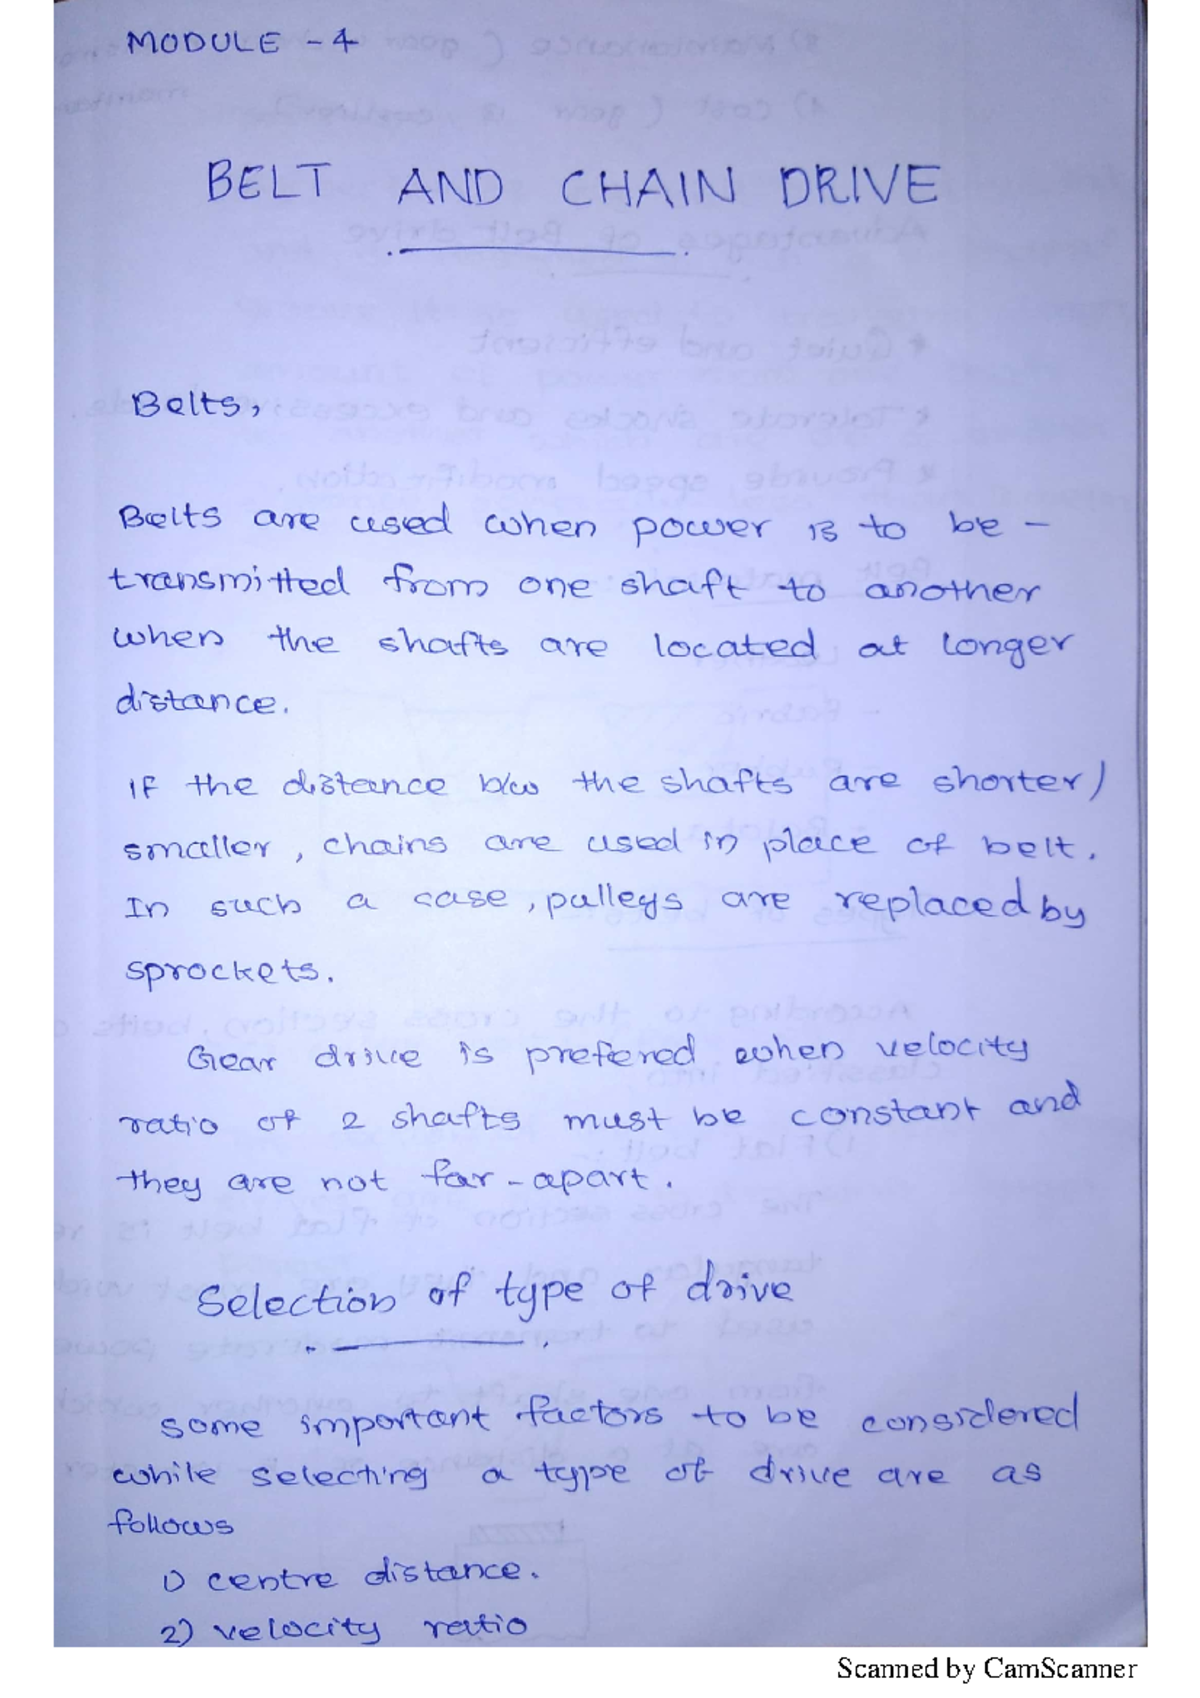 MODULE - 4
BELT AND CHAIN DRIVE
Belts,
Belts are used when power is to be -
transmitted from one shaft to another
when the shafts are located at longer
distance.
If the distance b/w the shafts are shorter/
smaller, chains are used in place of belt.
In such a case, pulleys are replaced by
sprockets.
Gear drive is prefered when velocity
ratio of 2 shafts must be constant and
they are not far-apart.
Selection of type of drive
Some important factors to be considered
while selecting a type of drive are as
follows
1) centre distance.
2) velocity ratio
Scanned by CamScanner